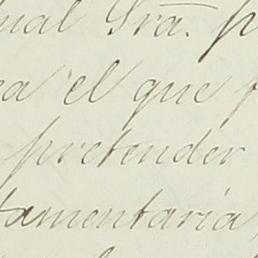 ual Sra. p
a el que
pretender
tamentaria,